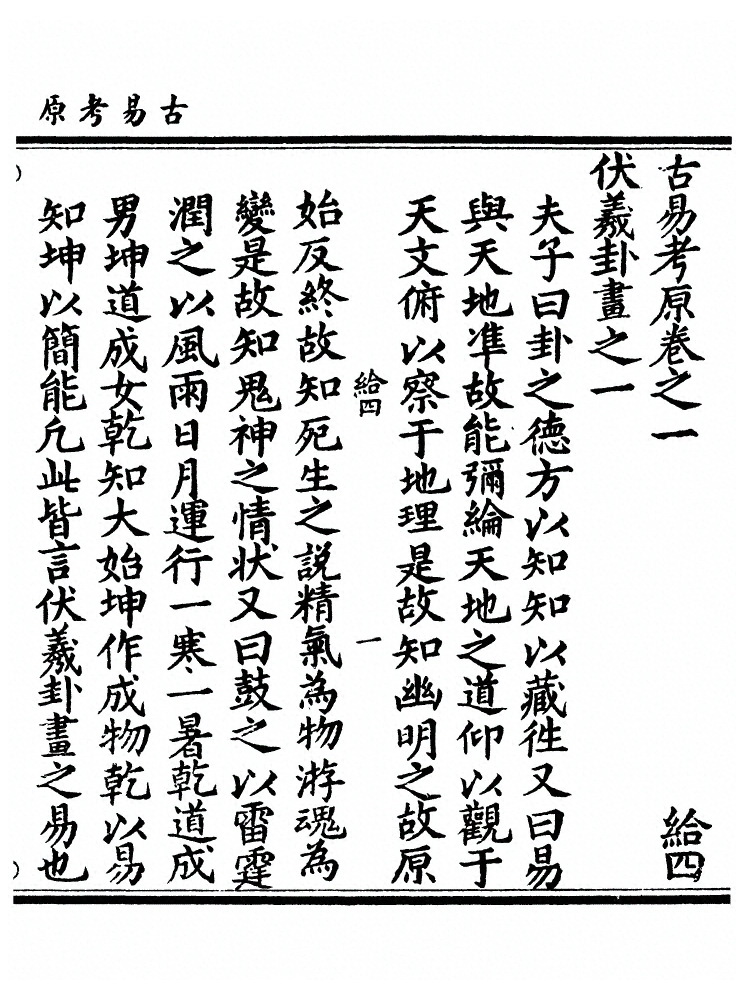 古易考原
古易考原卷之一
給四
伏羲卦畫之一
夫子曰卦之德方以知知以藏徃又曰易
與天地準故能彌綸天地之道仰以觀于
天文俯以察于地理是故知幽明之故原
給四
一
始反終故知死生之說精氣為物游魂為
變是故知鬼神之情狀又曰鼓之以雷霆
潤之以風雨日月運行一寒一暑乾道成
男坤道成女乾知大始坤作成物乾以易
知坤以簡能凡此皆言伏羲卦畫之易也